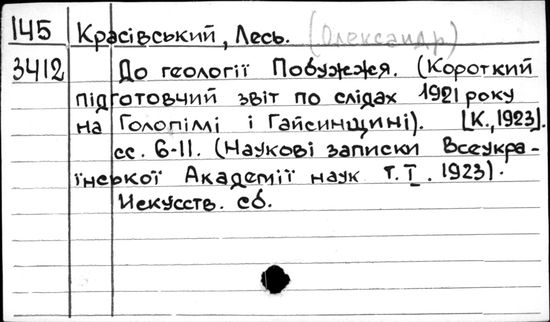 145 Красівський, Лесь. (Олександр)
3412 До геології Побужжя. (Короткий
підготовчий звіт по слідах 1921 року
на Голопімі і Гайсинщині). [К., 1923].
сс. 6-11. (Наукові записки Всеукра-
їнської Академії наук т. I. 1923).
Искусств. сб.